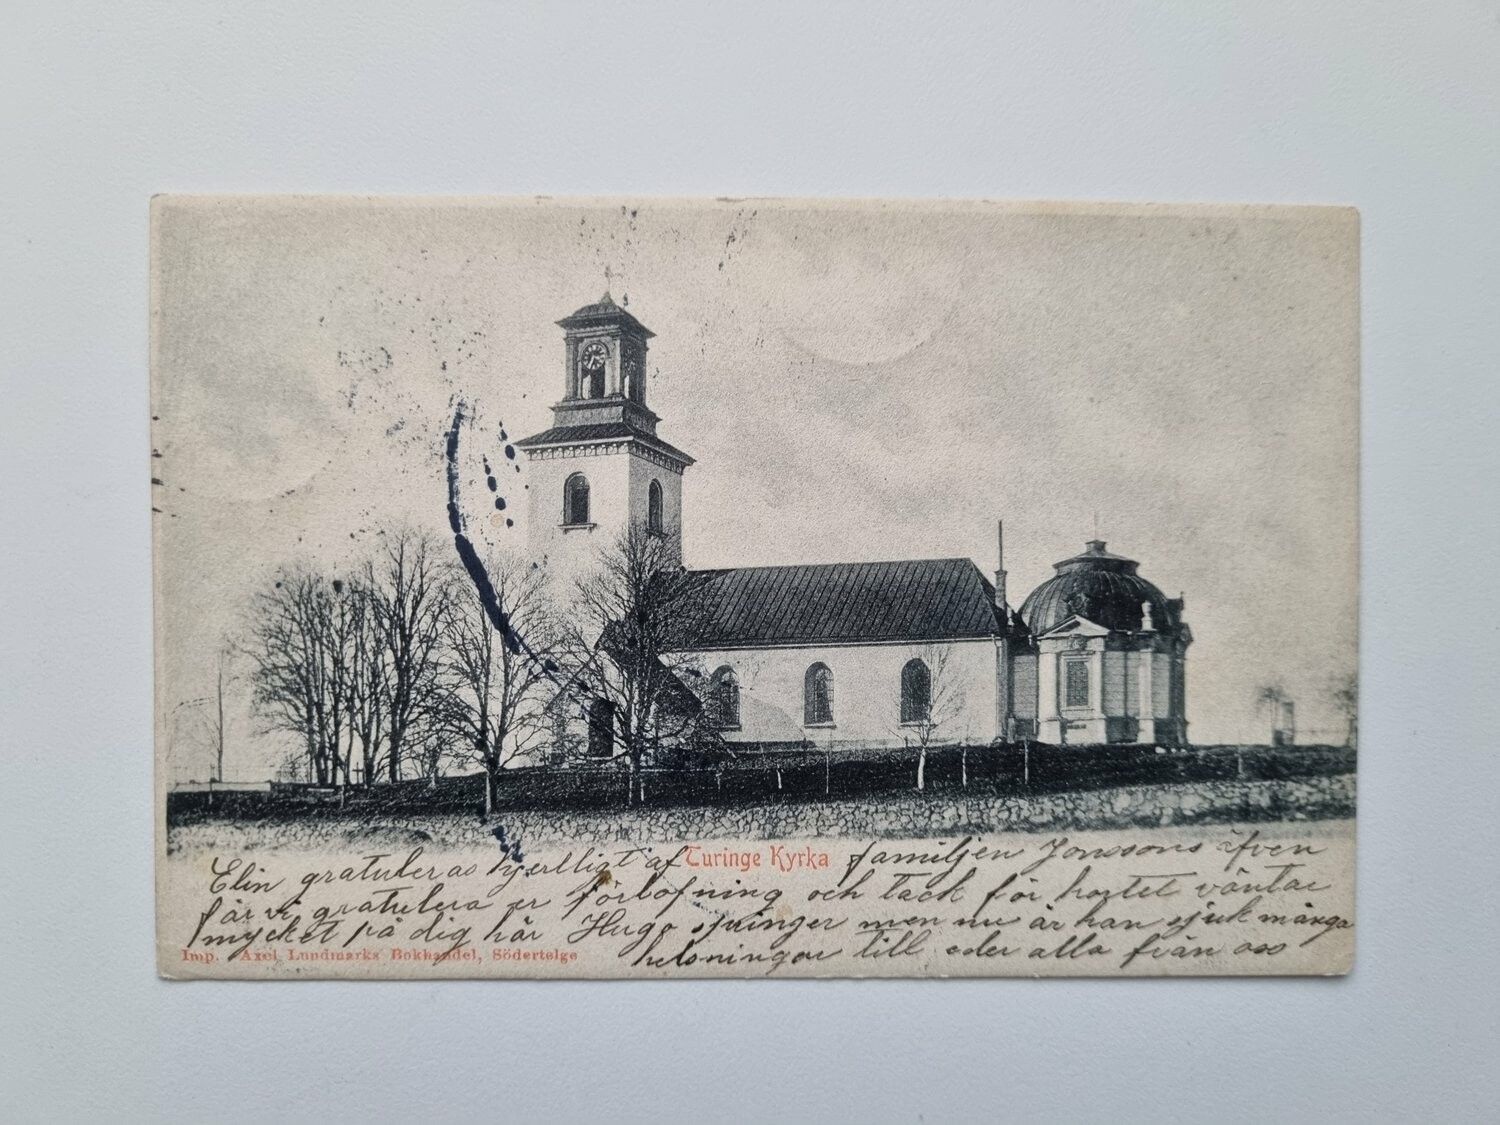 Turinge Kyrka
Elin gratuleras hjertligt af familjen Jonssons äfven
får vi gratulera er förlofning och tack för kortet väntar
mycket på dig här Hugo springer men nu är han sjuk många
helsningar till eder alla från oss
Imp. Axel Lundmarks Bokhandel, Södertelge